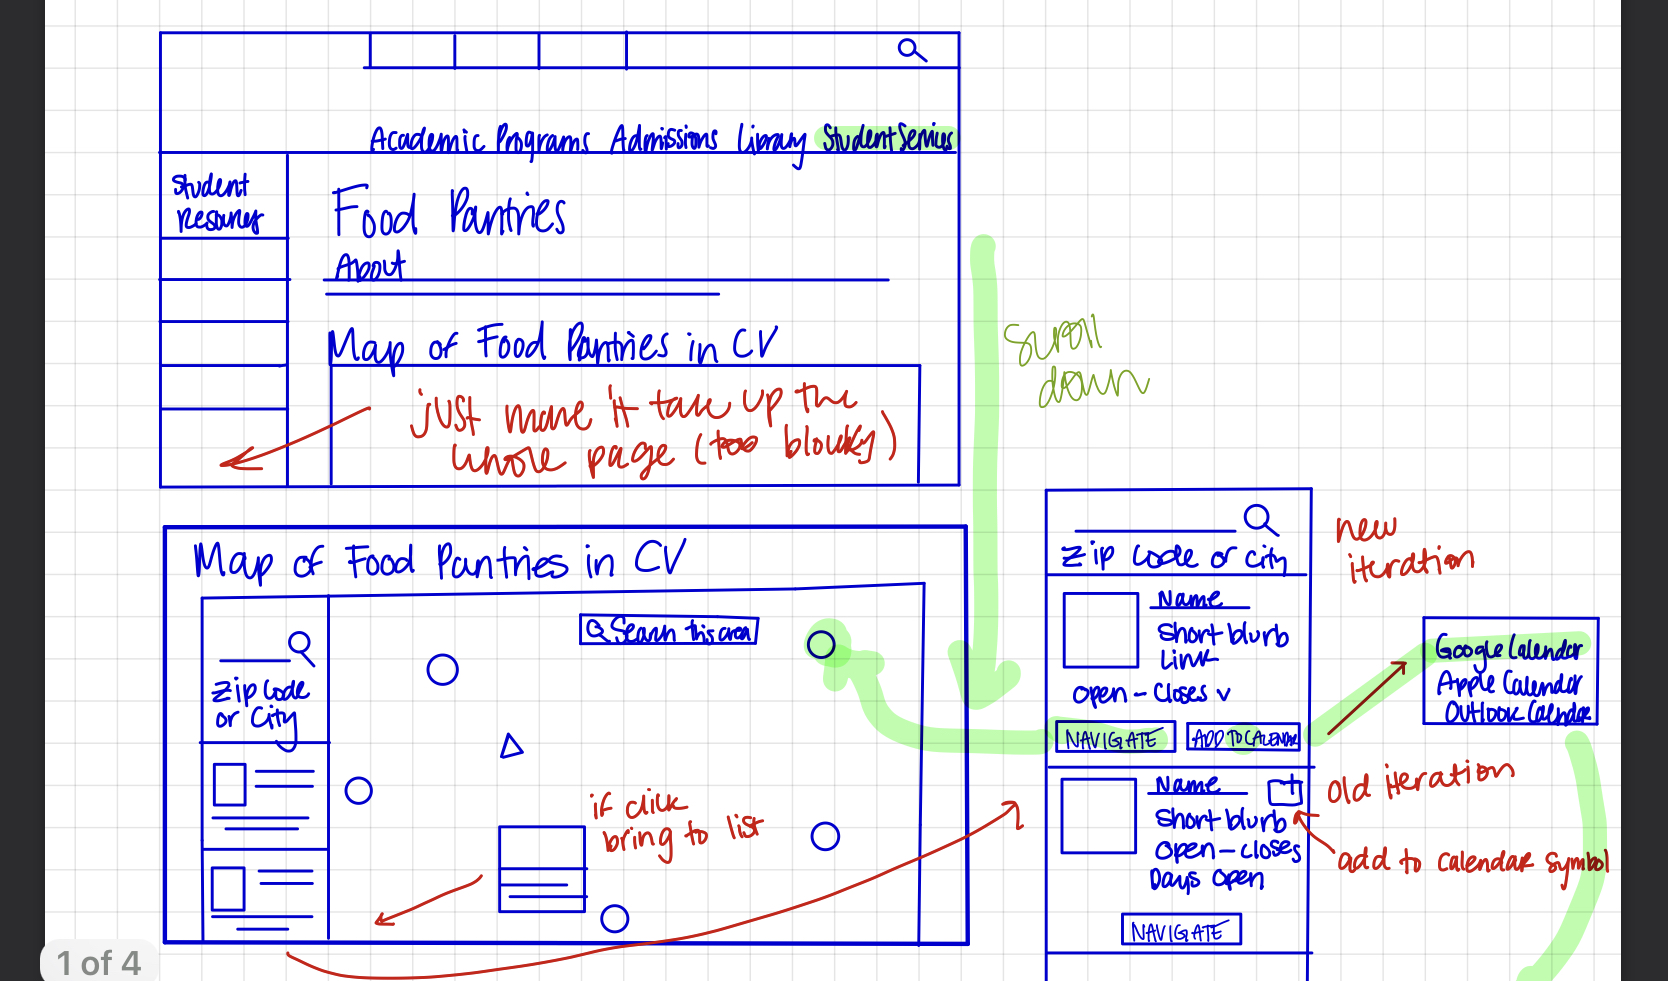 Academic Programs Admissions Library Student Services
Student
Resources
Food Pantries
About
Map of Food Pantries in CV
just make it take up the
whole page (too blocky)
scroll
down
Map of Food Pantries in CV
Search this area
Zip Code
or City
if click
bring to list
Zip Code or City
new
iteration
Name
Short blurb
Link
Open - Closes v
NAVIGATE
ADD TO CALENDAR
Google Calendar
Apple Calendar
Outlook Calendar
Name
Short blurb
Open - Closes
Days Open
NAVIGATE
old iteration
add to calendar symbol
1 of 4